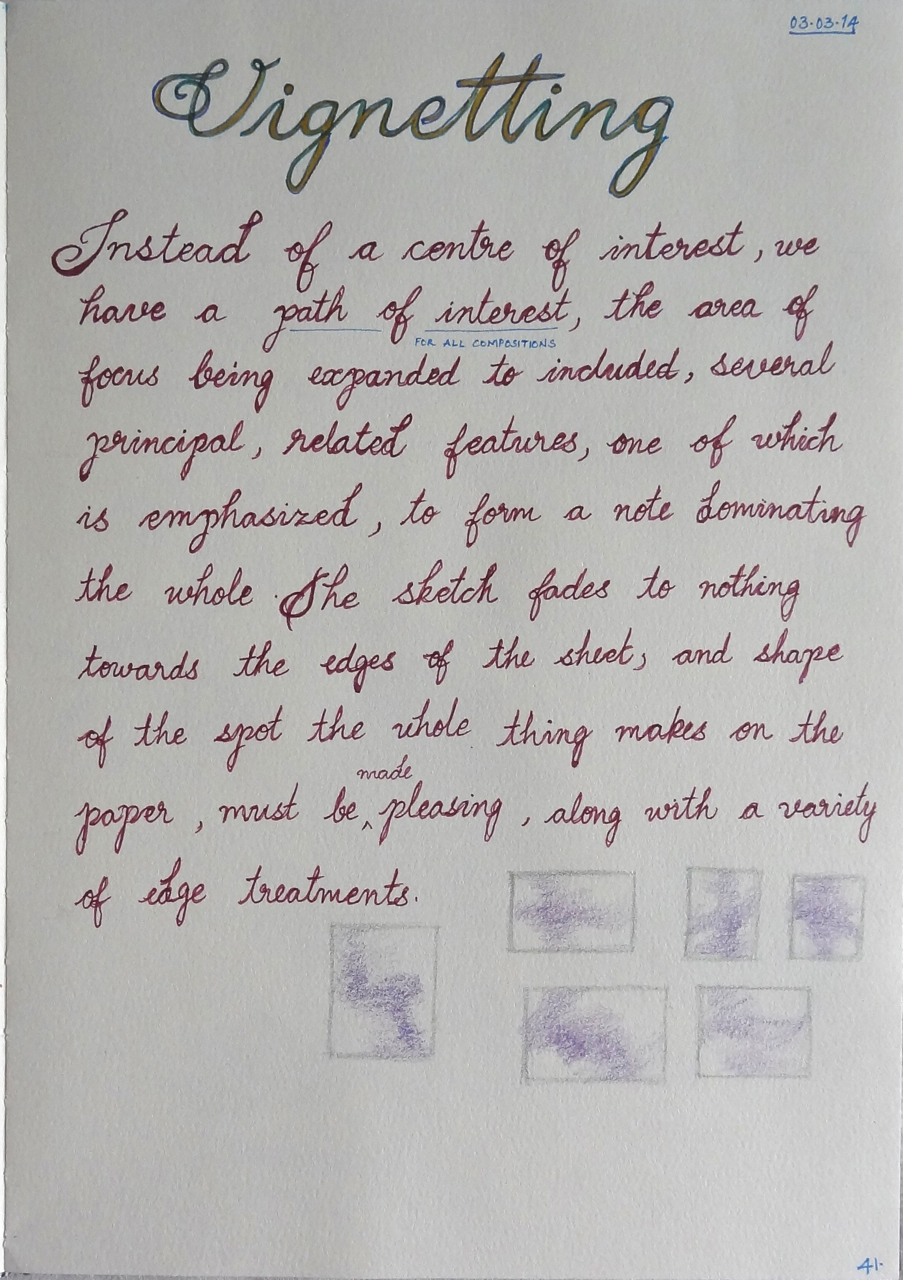 03-03-14
Vignetting
Instead of a centre of interest, we
have a path of interest, the area of
FOR ALL COMPOSITIONS
focus being expanded to included, several
principal, related features, one of which
is emphasized, to form a note dominating
the whole. The sketch fades to nothing
towards the edges of the sheet, and shape
of the spot the whole thing makes on the
made
paper, must be ‸ pleasing, along with a variety
of edge treatments.
41.